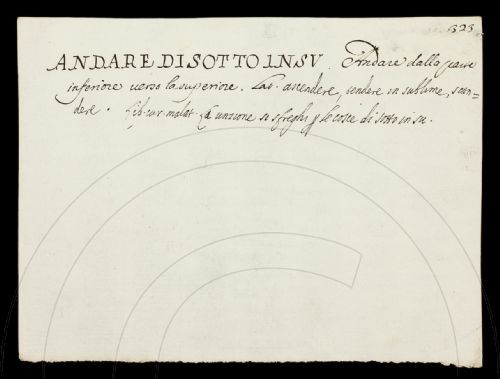 1323
ANDARE DI SOTTO IN SU. Andare dalla parte
inferiore verso la superiore. Lat. ascendere, tendere in sublime, scan=
dere. Lib. cur. malat. Ed unzione si sfreghi p le coscie di sotto in su.